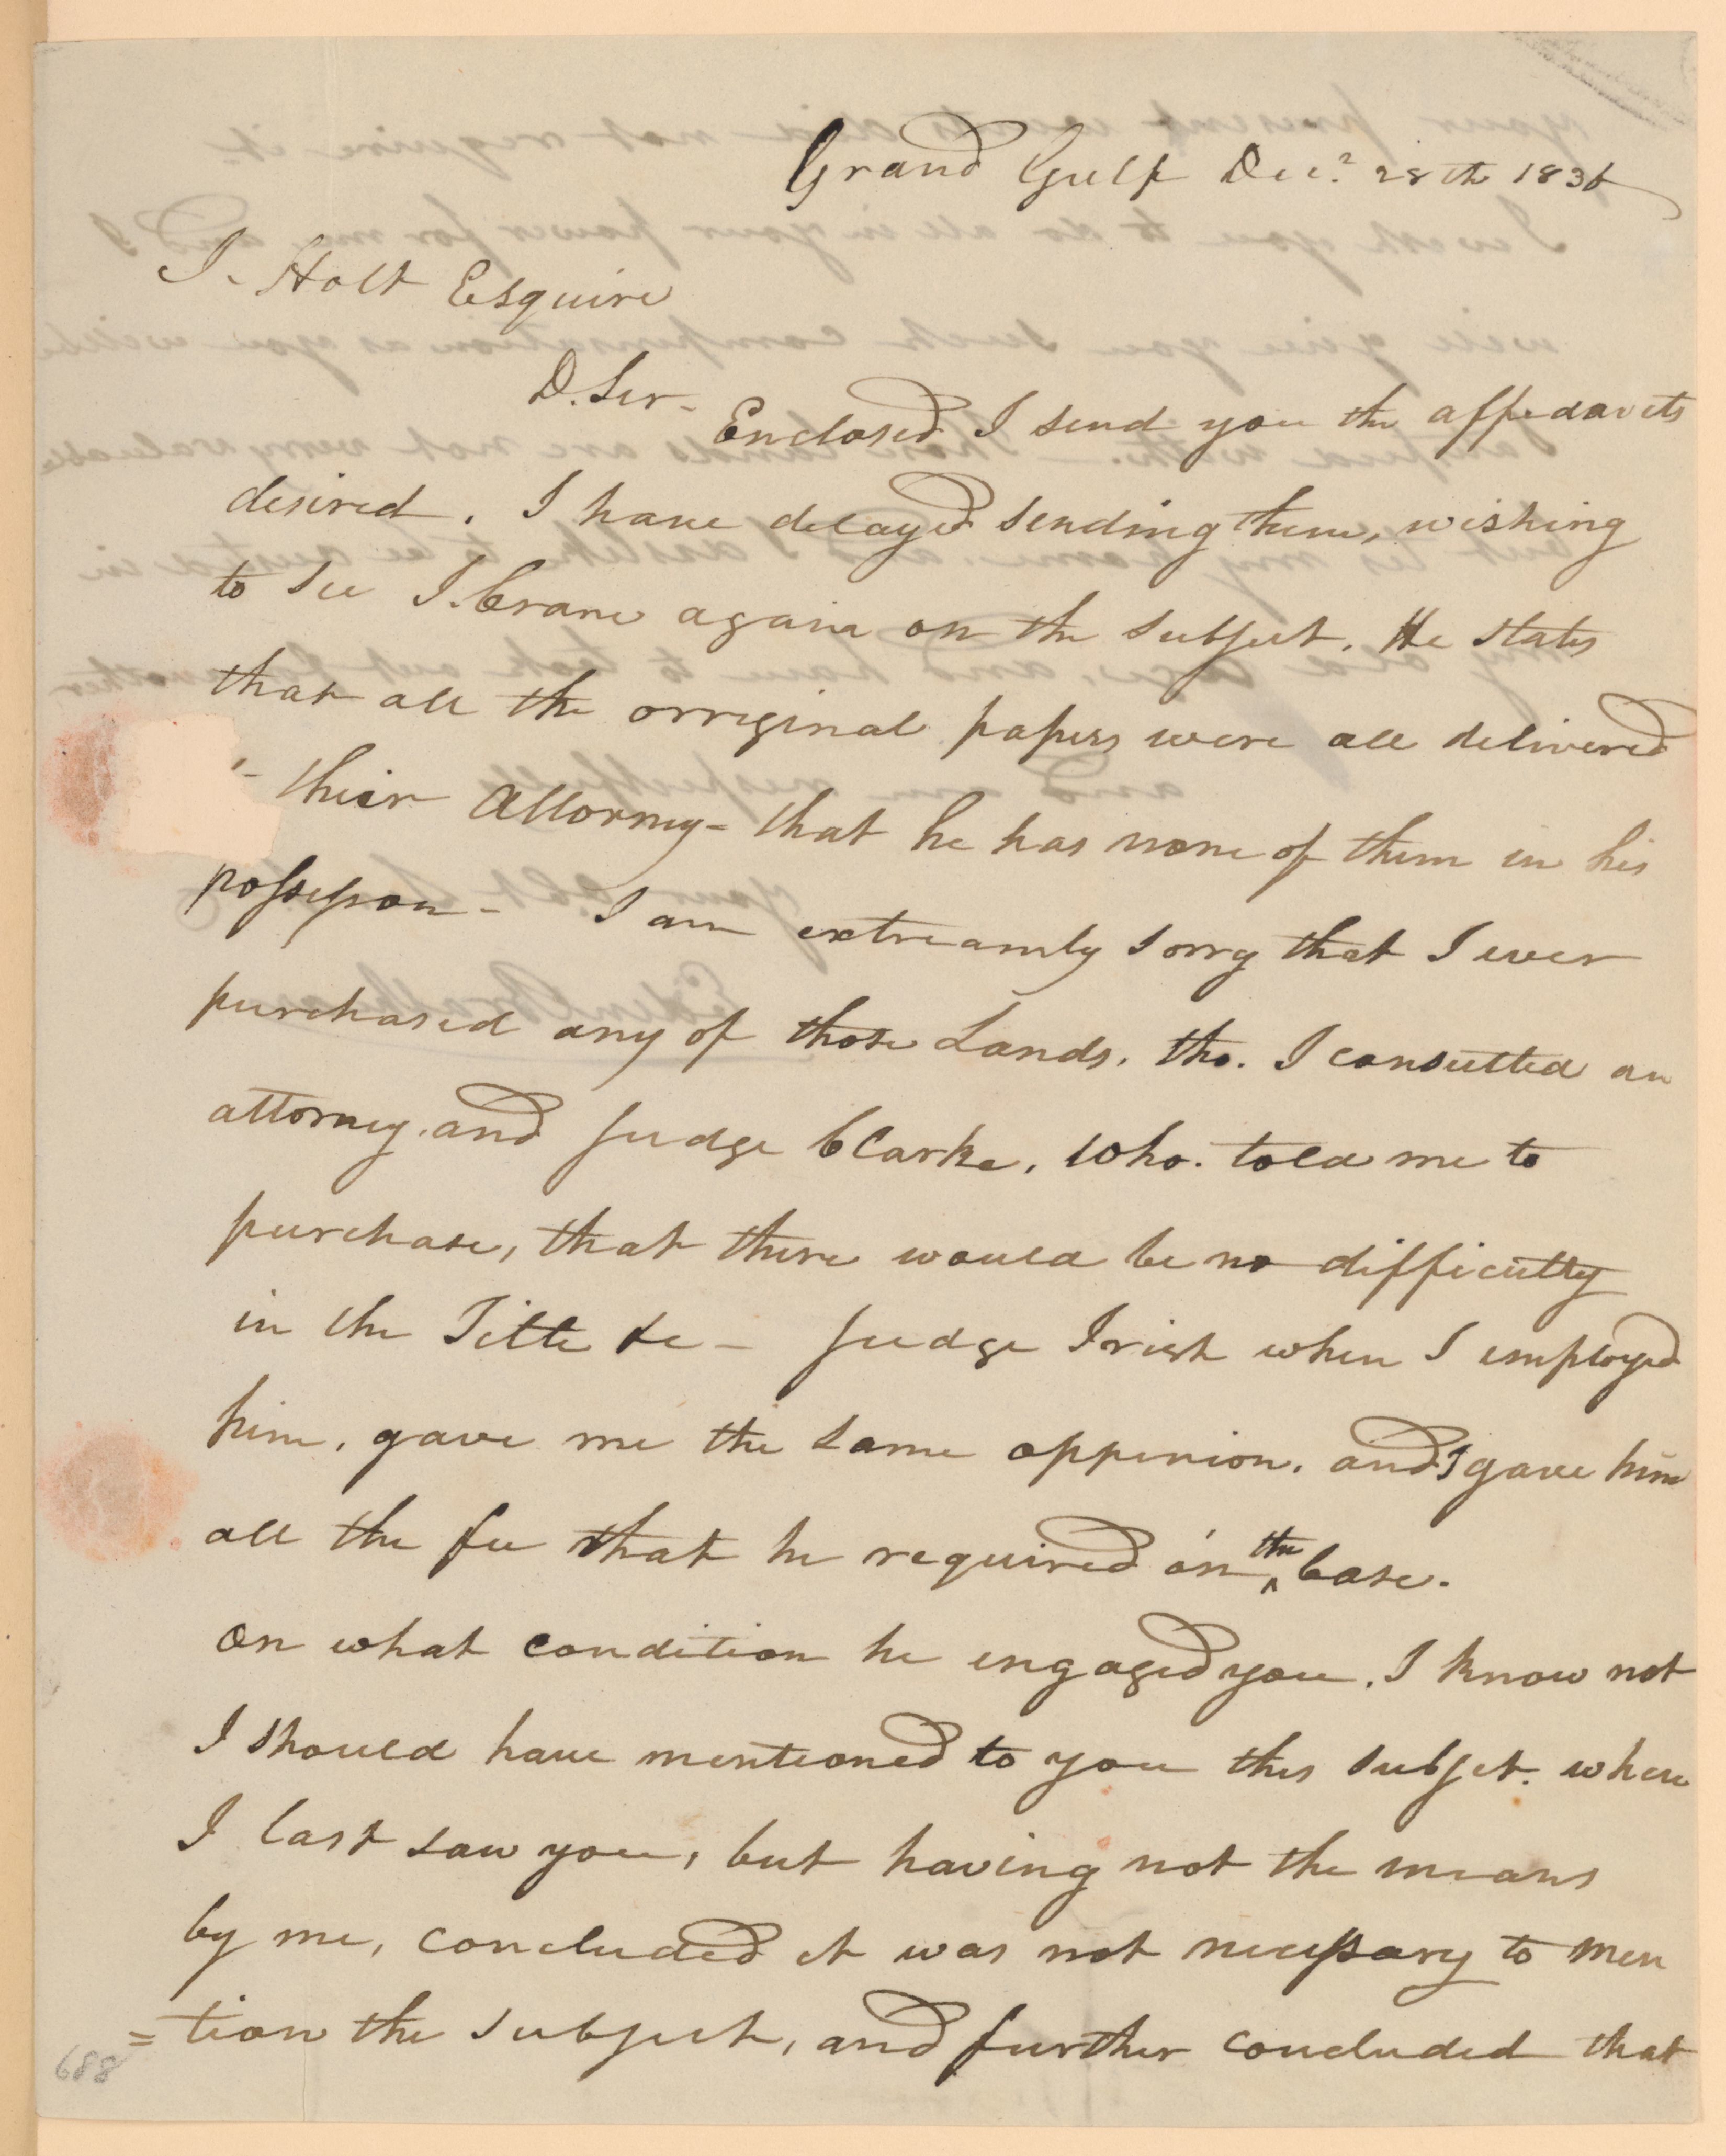 Grand Gulf Dec.r 28th 1836
J. Holt Esquire
D. Sir - Enclosed I send you the affidavits
desired. I have delayed sending them, wishing
to see J. Crane again on the subject. He states
that all the orriginal papers were all delivered
their Attorney - that he has none of them in his
possession - I am extreamly sorry that I ever
purchased any of those Lands. tho. I consulted an
attorney. and Judge Clarke. who. told me to
purchase, that there would be no difficulty
in the Title &c - Judge Irish when I employed
him, gave me the same oppinion. and I gave him
all the fee that he required on the Case.
On what condition he engaged you. I know not
I should have mentioned to you this subject. when
I last saw you, but having not the means
by me, concluded it was not necessary to men
=tion the subject, and further concluded that
688